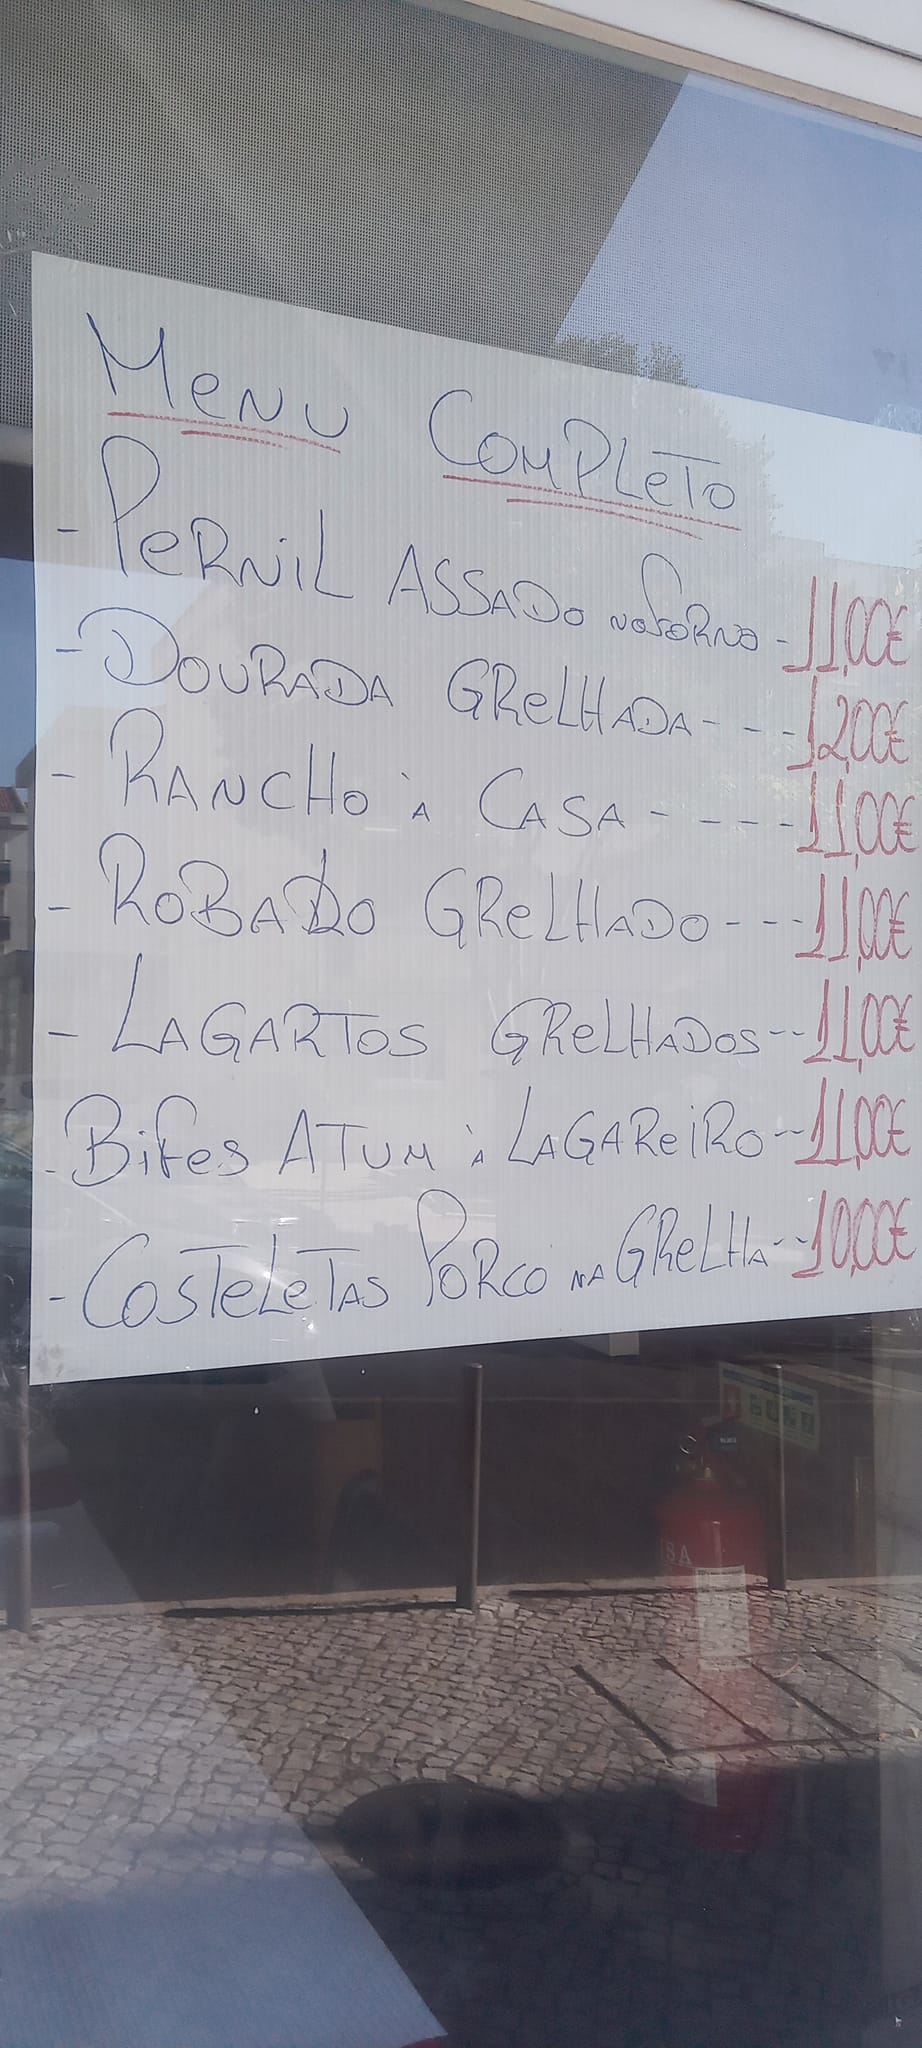 Menu Completo
- Pernil Assado no forno - 11,00€
- Dourada Grelhada - - - 12,00€
- Rancho à Casa - - - - 11,00€
- Robado Grelhado - - - 11,00€
- Lagartos Grelhados - - 11,00€
- Bifes Atum à Lagareiro - - 11,00€
- Costeletas Porco na Grelha - - 10,00€